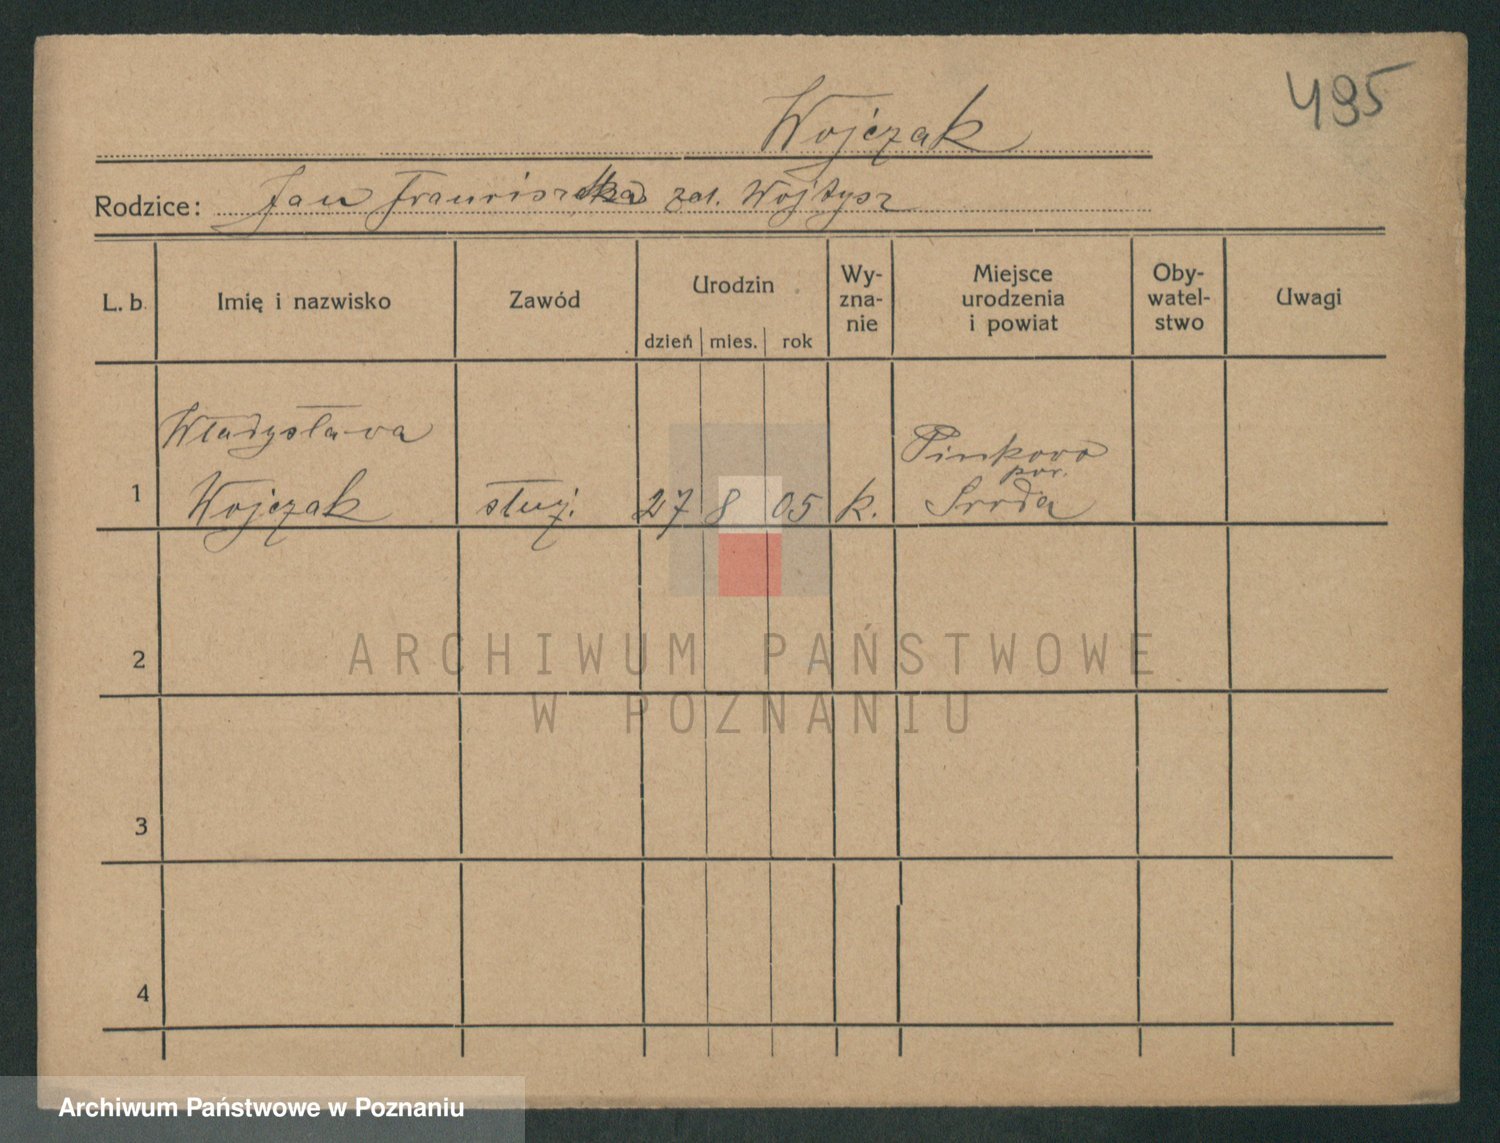 495
Wojczak
Rodzice: Jan Franciszka zd. Wojtysz
L. b.
Imię i nazwisko
Zawód
Urodzin
dzień mies. rok
Wy-
zna-
nie
Miejsce
urodzenia
i powiat
Oby-
watel-
stwo
Uwagi
1
Władysława
Wojczak
służ.
27 8 05
k.
Pinkowo
pow.
Sroda
2
3
4
ARCHIWUM PAŃSTWOWE
W POZNANIU
Archiwum Państwowe w Poznaniu